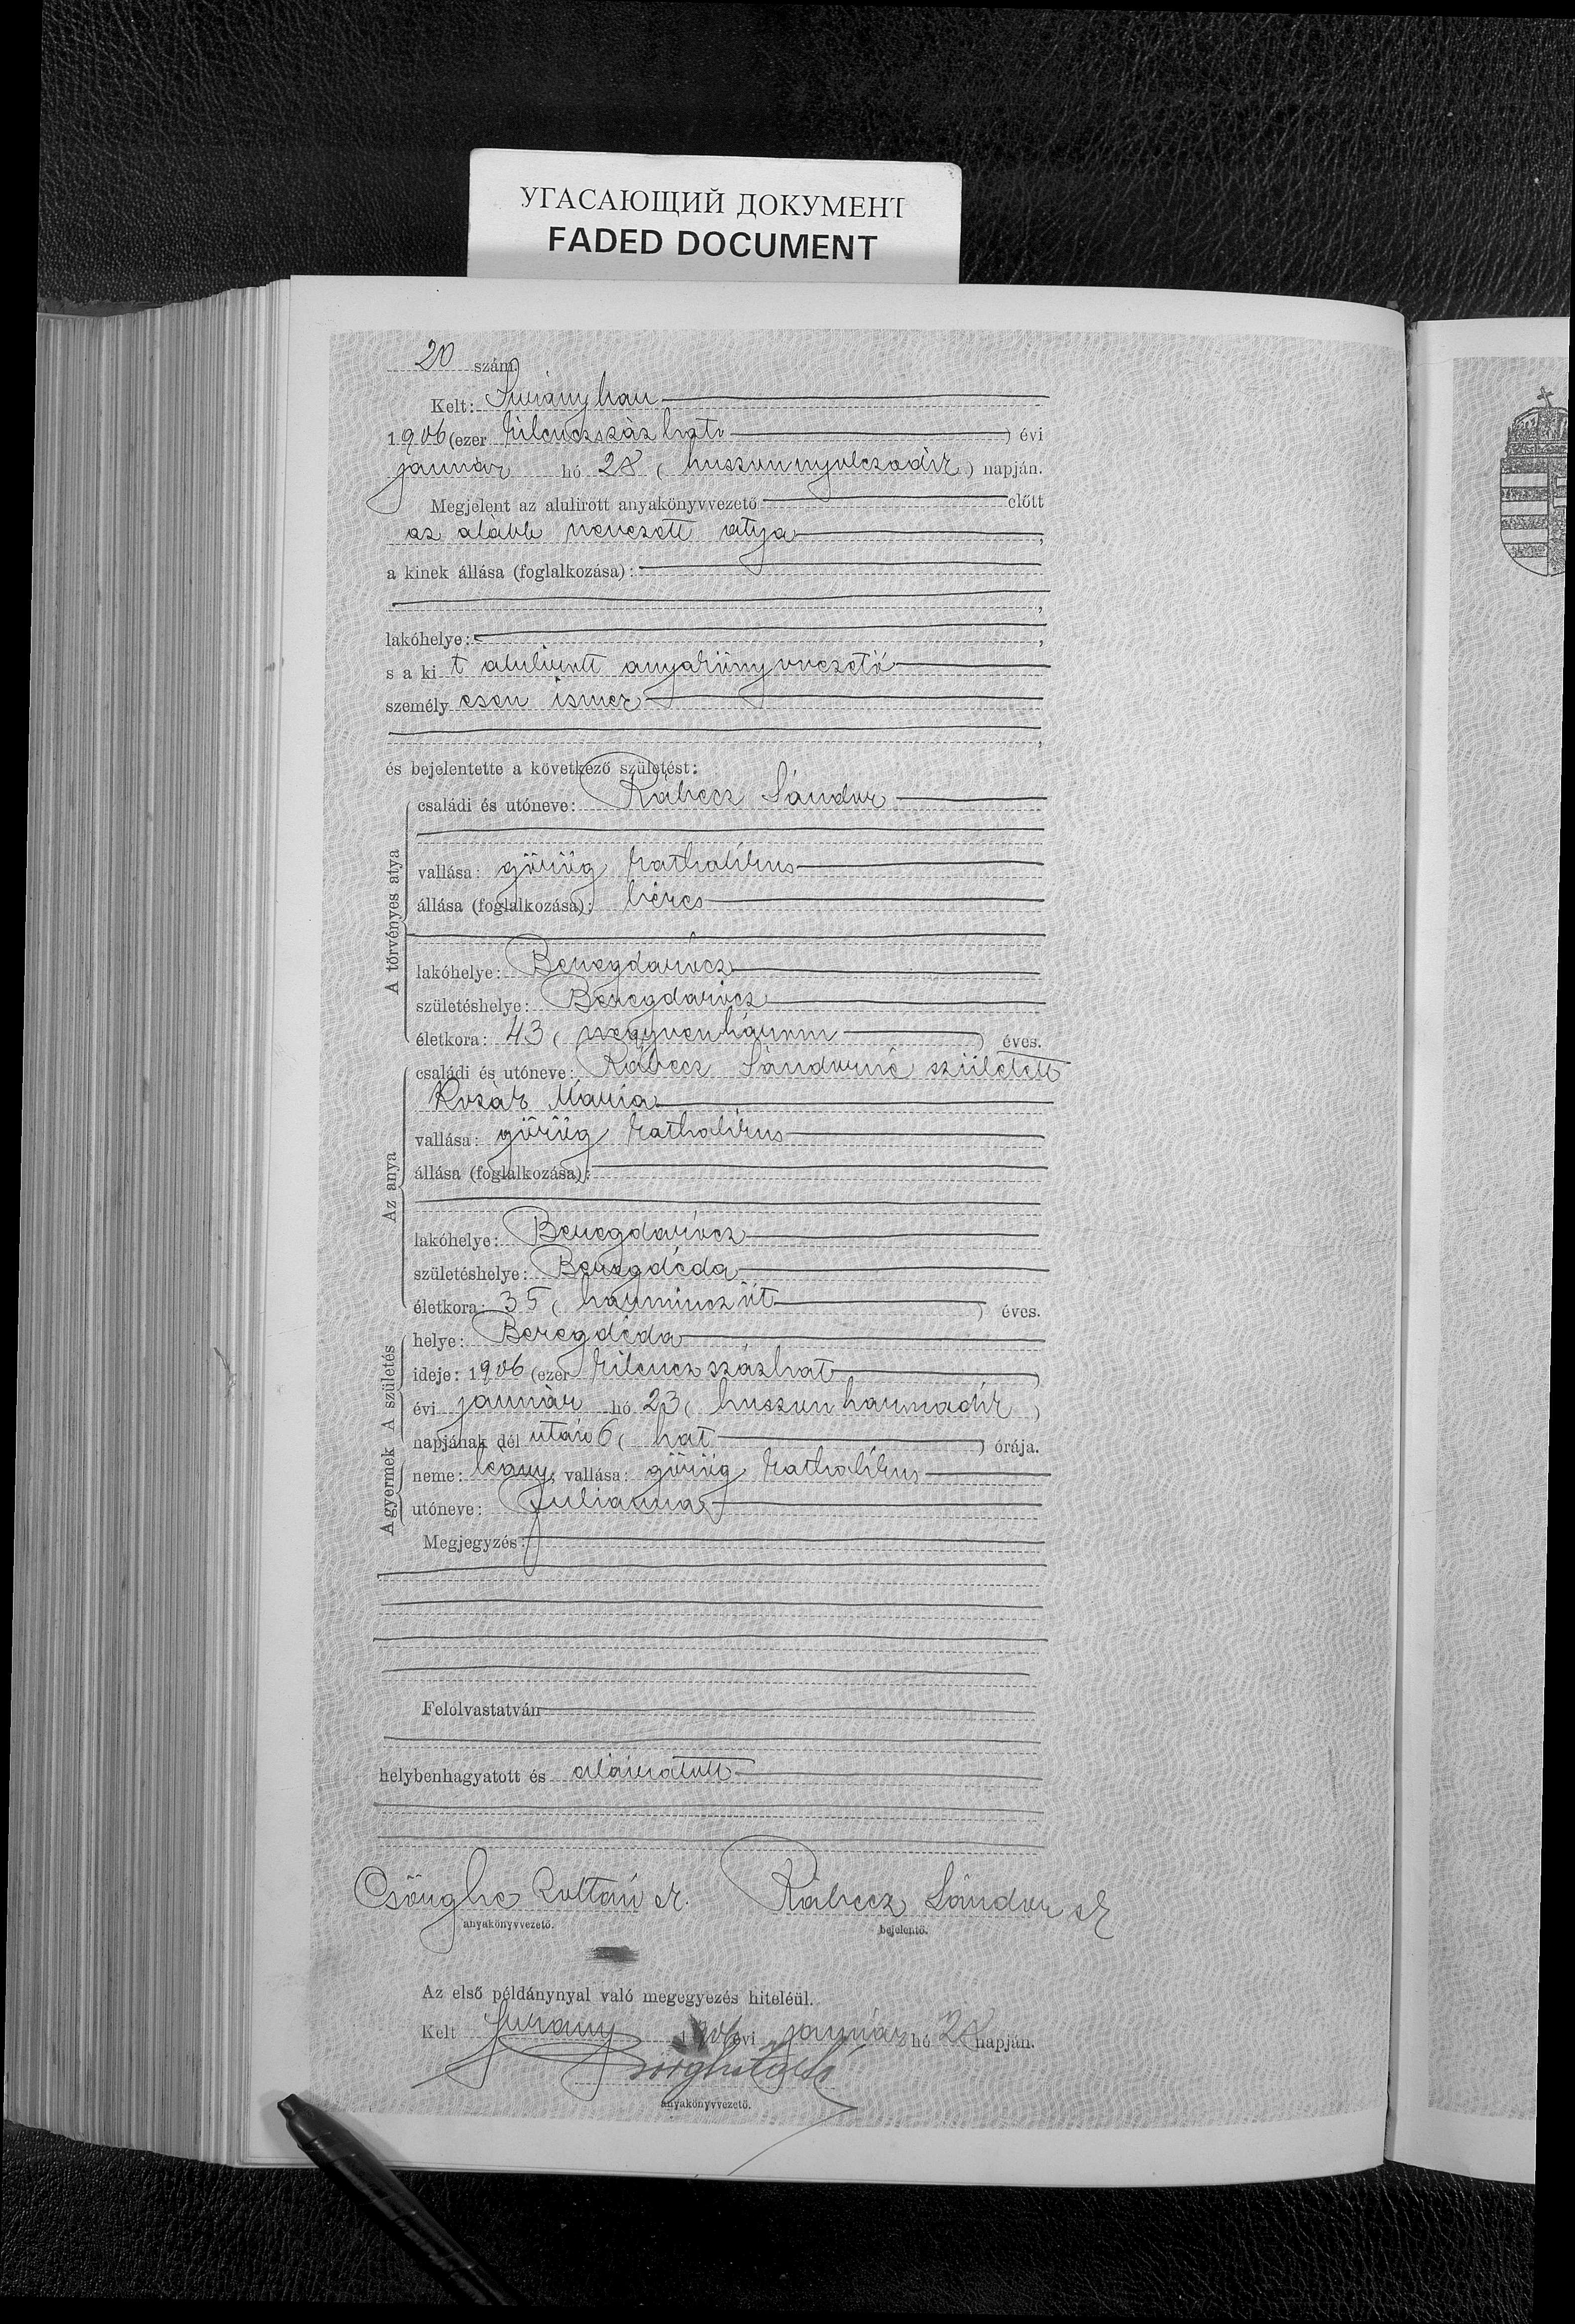 УГАСАЮЩИЙ ДОКУМЕНТ
FADED DOCUMENT
20 szám.
Kelt: Surányban
1906 (ezer kilenczszáz hat) évi
január hó 28 (huszonnyolczadik) napján.
Megjelent az alulirott anyakönyvvezető előtt
az alább nevezett atya,
a kinek állása (foglalkozása):
,
lakóhelye: ,
s a kit alulirott anyakönyvvezető
személyesen ismer
,
és bejelentette a következő születést:
A törvényes atya
családi és utóneve: Rábecz Sándor
vallása: görög katholikus
állása (foglalkozása): béres
lakóhelye: Beregdarócz
születéshelye: Beregdarócz
életkora: 43 (negyvenhárom) éves.
Az anya
családi és utóneve: Rábecz Sándorné született
Kozár Mária
vallása: görög katholikus
állása (foglalkozása):
lakóhelye: Beregdarócz
születéshelye: Beregdéda
életkora: 35 (harminczöt) éves.
A születés
helye: Beregdéda
ideje: 1906 (ezer kilenczszázhat)
évi január hó 23 (huszonharmadik)
napjának délután 6 (hat) órája.
A gyermek
neme: leány, vallása: görög katholikus
utóneve: Julianna
Megjegyzés:
Felolvastatván
helybenhagyatott és aláiratott
Csönghe Zoltán sk. Rábecz Sándor sk
anyakönyvvezető. bejelentő.
Az első példánynyal való megegyezés hiteléül.
Kelt Surány 1906 évi január hó 28 napján.
anyakönyvvezető.